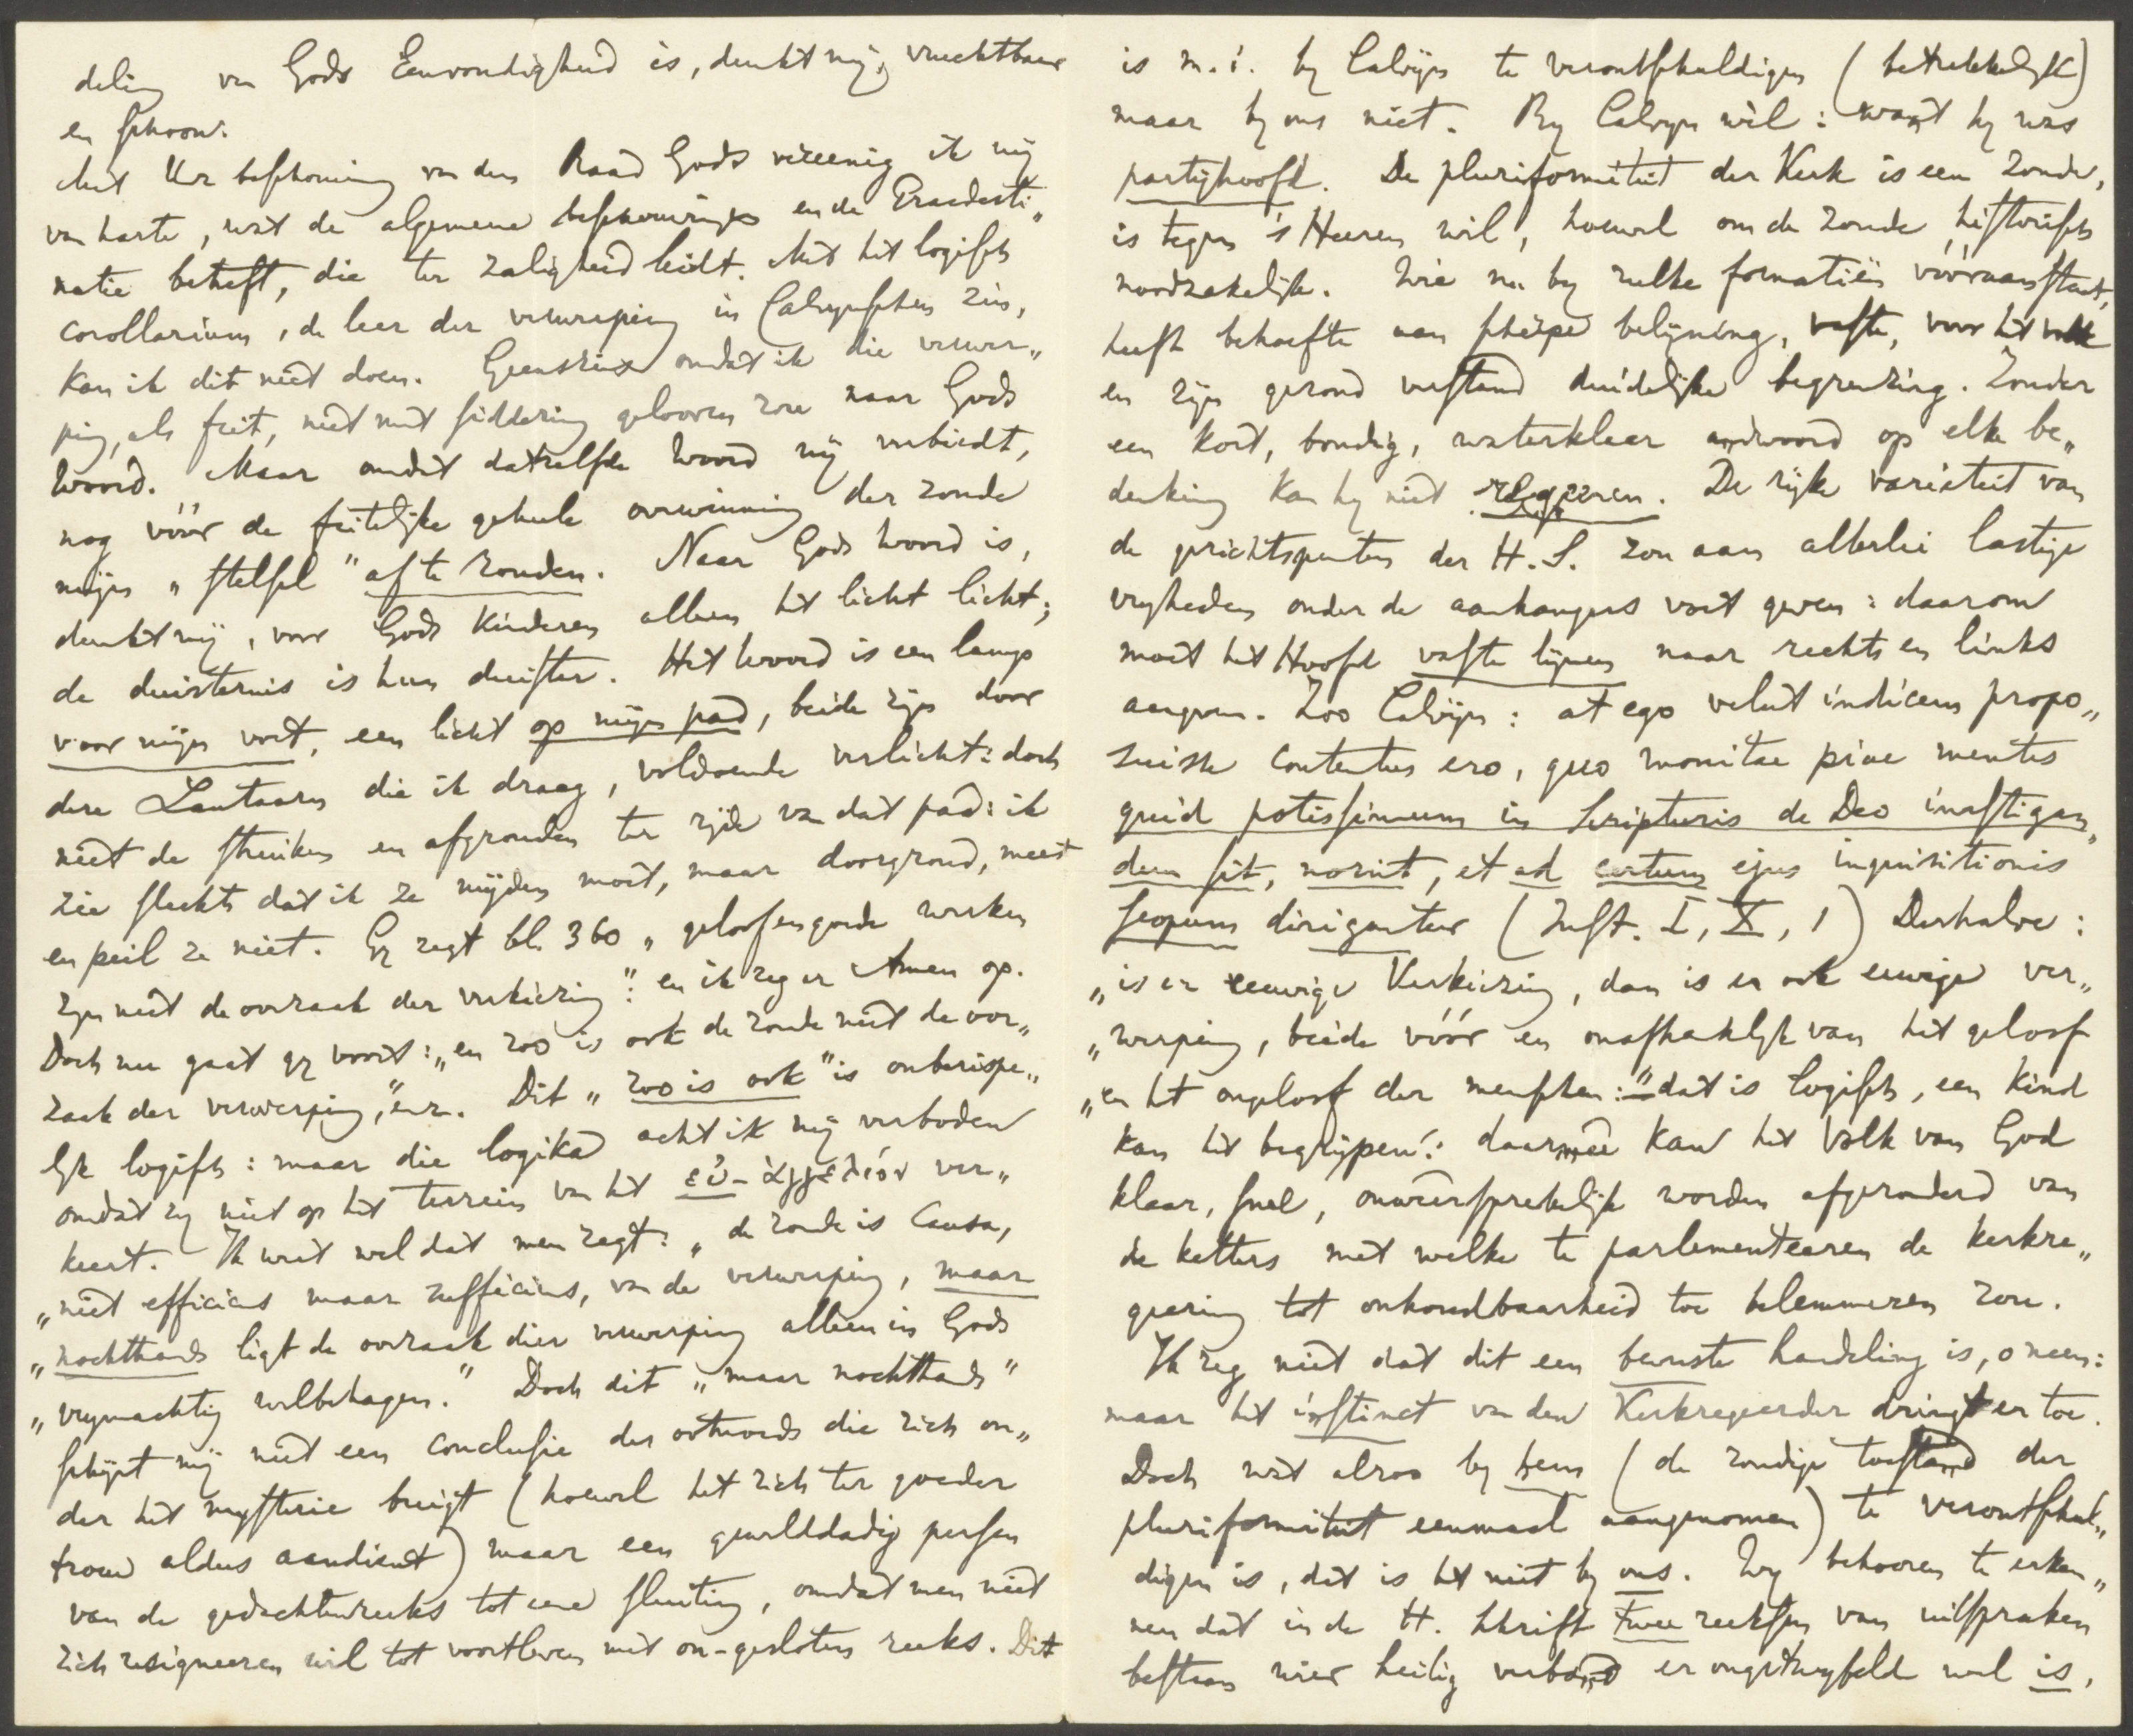 deling van Gods Eenvoudigheid is, dunkt mij, vruchtbaar
en schoon.
Met Uw beschouwing van den Raad Gods vereenig ik mij
van harte, wat de algemene beschouwingen en de Praedesti„
natie betreft, die ter zaligheid leidt. Met het logisch
corollarium, de leer der verwerping in Calvynschen zin,
kan ik dit niet doen. Geenszins omdat ik die verwer„
ping, als feit, niet met siddering gelooven zou naar Gods
Woord. Maar omdat datzelfde Woord mij verbiedt,
nog vóór de feitelijke geheele overwinning der zonde
mijn „stelsel" af te ronden. Naar Gods Woord is,
dunkt mij, voor Gods kinderen alleen het licht licht;
de duisternis is hun duister. Het Woord is een lamp
voor mijn voet, een licht op mijn pad, beide zijn door
deze Lantaarn die ik draag, voldoende verlicht: doch
niet de struiken en afgronden ter zijde van dat pad: ik
zie slechts dat ik ze mijden moet, maar doorgrond, meet
en peil ze niet. Gy zegt bl. 360 „geloof en goede werken
zyn niet de oorzaak der verkiezing": en ik zeg er Amen op.
Doch nu gaat gy voort: „en zoo is ook de zonde niet de oor„
zaak der verwerping", enz. Dit „zoo is ook" is onberispe„
lyk logisch: maar die logika acht ik mij verboden
omdat zy niet op het terrein van het εὐ-αγγελιόν ver„
keert. Ik weet wel dat men zegt: „de zonde is causa,
„niet efficiens maar sufficiens, van de verwerping, maar
„nochthands ligt de oorzaak dier verwerping alleen in Gods
„vrymachtig welbehagen." Doch dit „maar nochthands"
schijnt mij niet een conclusie des ootmoeds die zich on„
der het mysterie buigt (hoewel het zich ter goeder
trouw aldus aandient) maar een gewelddadig persen
van de gedachtenreeks tot eene sluiting, omdat men niet
zich resigneeren wil tot voortleven met on-gesloten reeks. Dit
is m.i. by Calvijn te verontschuldigen (betrekkelyk)
maar by ons niet. By Calvyn wel: want hy was
partijhoofd. De pluriformiteit der Kerk is een zonde,
is tegen 's Heeren wil, hoewel om de zonde historisch
noodzakelijk. Wie nu by zulke formatiën vóóraanstaat,
heeft behoefte aan scherpe belijning, vaste, voor het volk
en zijn gezond verstand duidelijke begrenzing. Zonder
een kort, bondig, waterklaar andwoord op elke be„
denking kan hy niet regeeren. De rijke varieteit van
de gezichtspunten der H.S. zou aan allerlei lastige
vryheden onder de aanhangers voet geven: daarom
moet het Hoofd vaste lijnen naar rechts en links
aangeven. Zoo Calvijn: at ego velut indicem propo„
suisse contentus ero, quo monitae piae mentes
quid potissimum in Scripturis de Deo investigan„
dum sit, norint, et ad certum ejus inquisitionis
scopum dirigantur (Inst. I, X, 1) Derhalve:
„is er eeuwige Verkiezing, dan is er ook eeuwige ver„
„werping, beide vóór en onafhankelyk van het geloof
„en het ongeloof der menschen:" dat is logisch, een kind
kan het begrijpen: daarmeê kan het Volk van God
klaar, snel, onweêrsprekelijk worden afgezonderd van
de ketters met welke te parlementeeren de kerkre„
geering tot onhoudbaarheid toe belemmeren zou.
Ik zeg niet dat dit een bewuste handeling is, o neen:
maar het instinct van den Kerkregeerder dringt er toe.
Doch wat alzoo by hem (de zondige toestand der
pluriformiteit eenmaal aangenomen) te verontschul„
digen is, dat is het niet by ons. Wy behooren te erken„
nen dat in de H. Schrift twee reeksen van uitspraken
bestaan wier heilig verband er ongetwyfeld wel is,